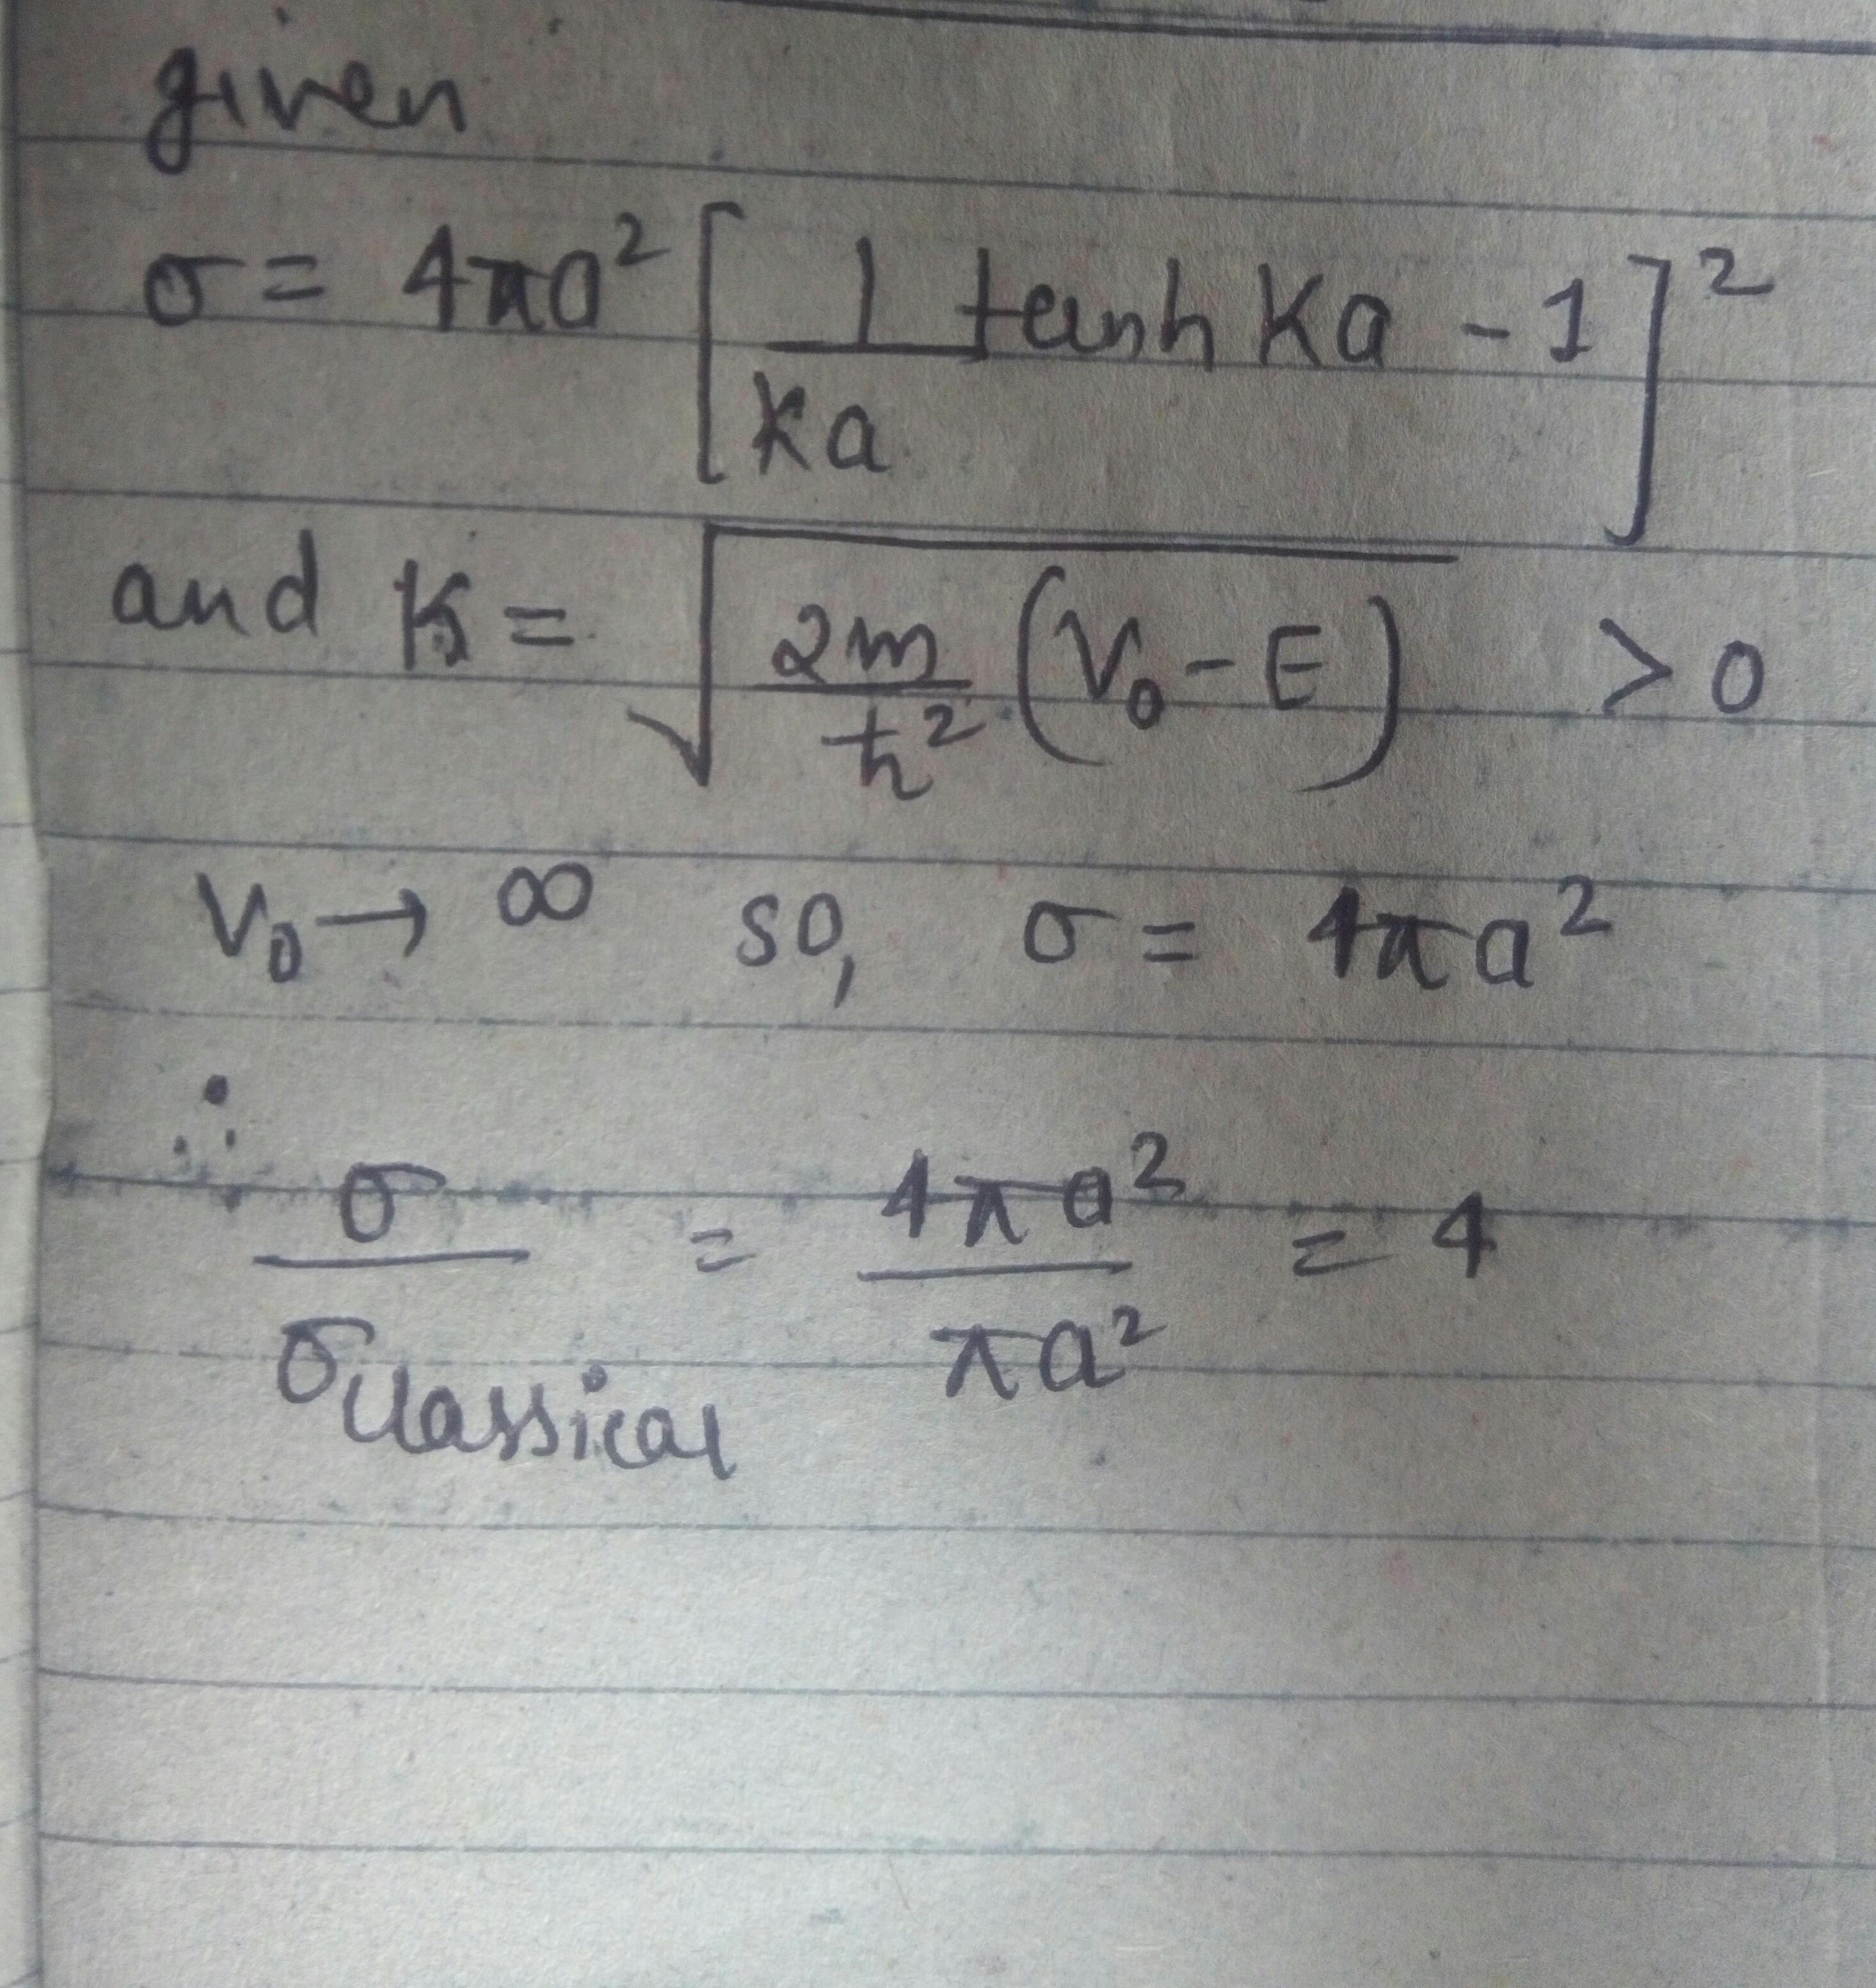 given
σ = 4πa² [ 1/ka tanh Ka - 1 ]²
and K = √( 2m/ħ² (V₀ - E) ) > 0
V₀ → ∞ so, σ = 4πa²
∴ σ/σclassical = 4πa²/πa² = 4